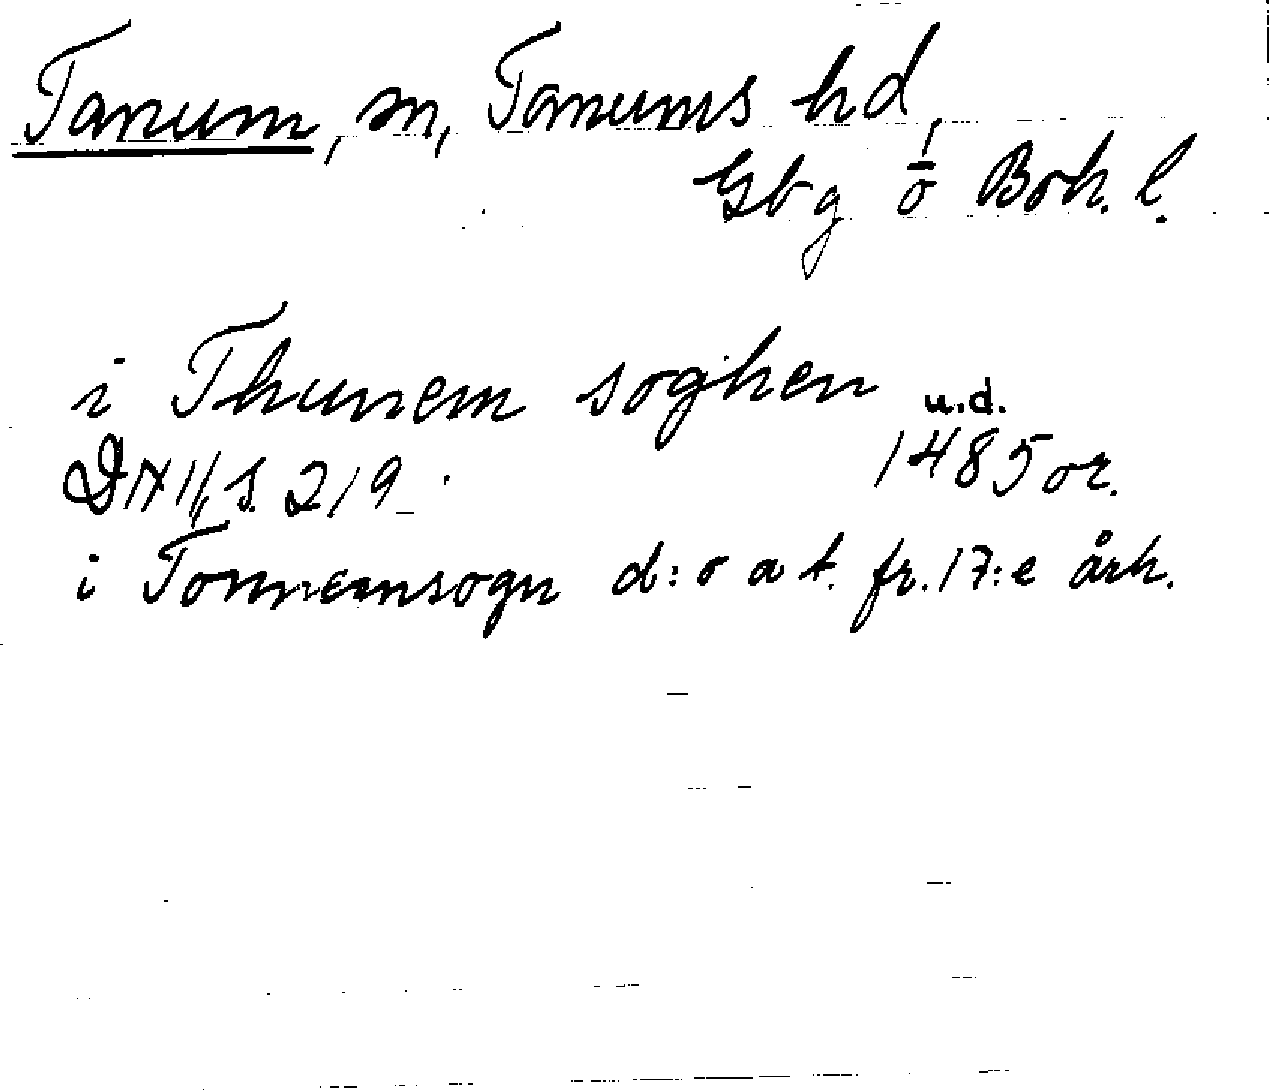 Tanum, sn, Tanums hd,
Gbg o Boh. l.
i Thunem soghen u.d.
DN II, s. 219. 1485 or.
i Tonnemsogn d:o a t. fr. 17:e årh.